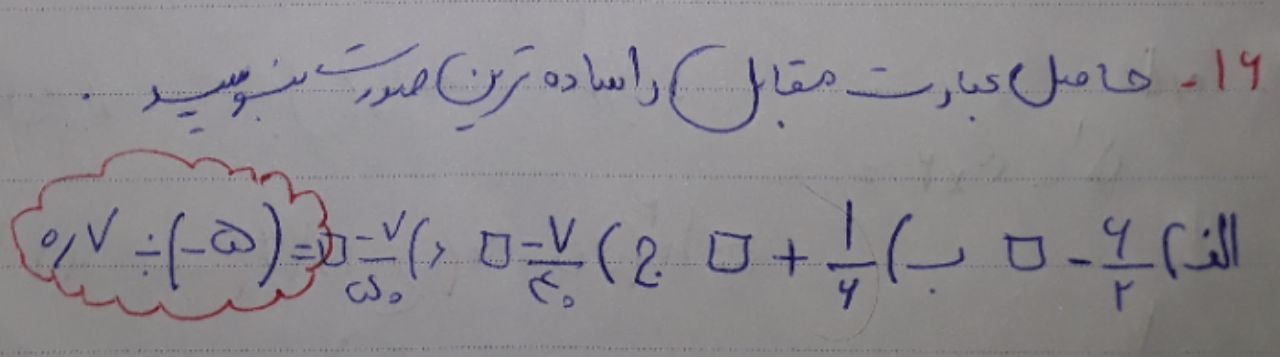 ۱۶- حاصل عبارت مقابل را ساده ترین صورت بنویسید .
الف) -۶/۲ □ ب) +۱/۶ □ ج) -۷/۴۰ □ د) -۷/۵۰ □ ۰٫۷ ÷ (-۵) =